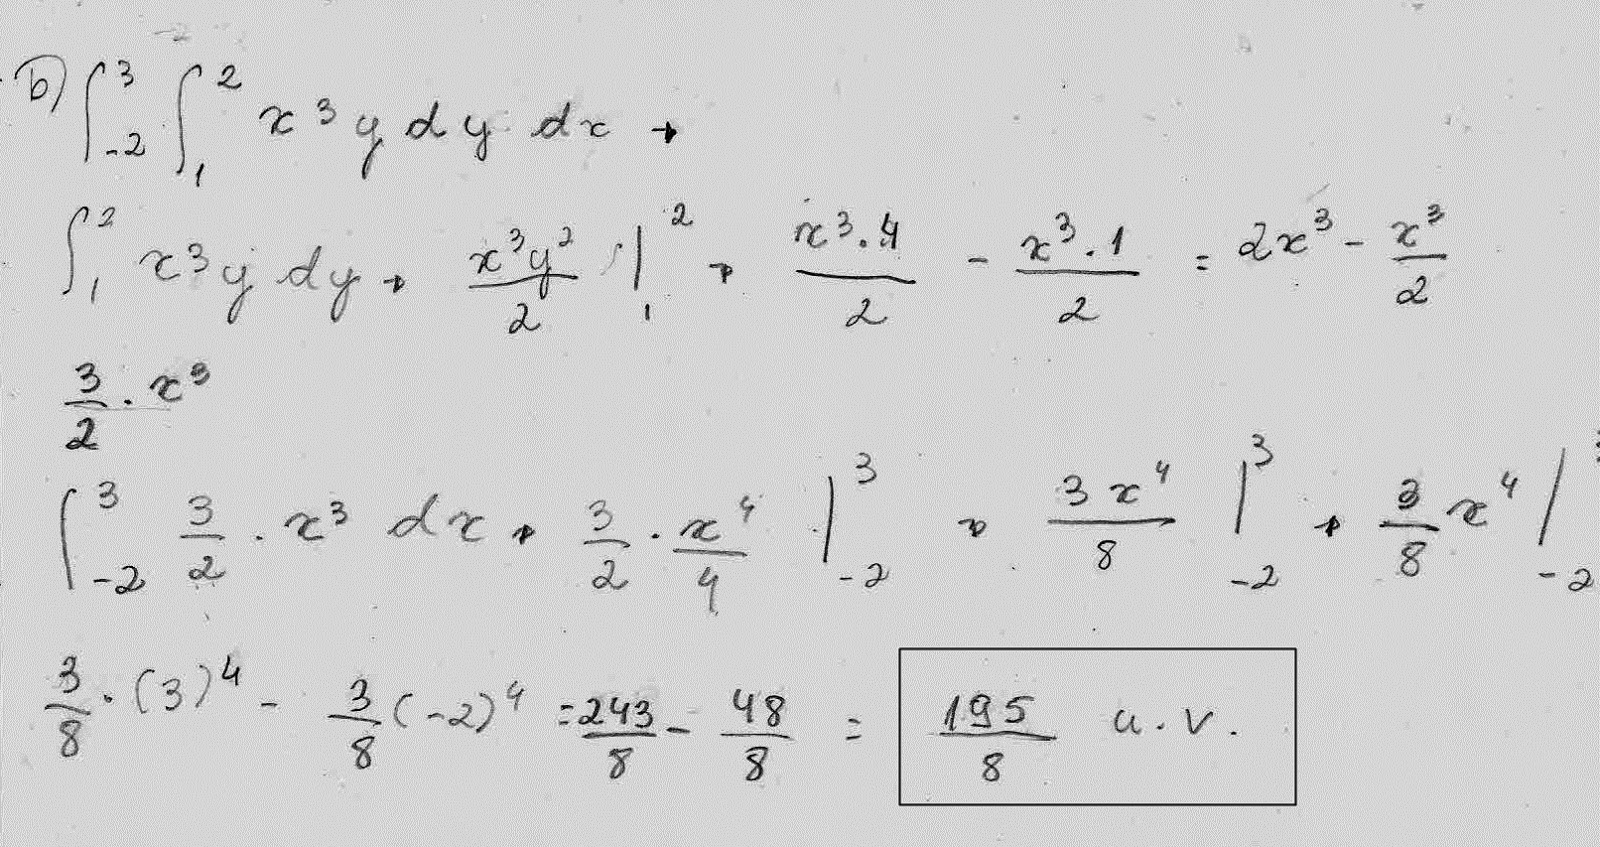 b) ∫_{-2}^{3} ∫_{1}^{2} x³ y dy dx →
∫_{1}^{2} x³ y dy → x³y²/2 |_{1}^{2} → x³.4/2 - x³.1/2 = 2x³ - x³/2
3/2 . x³
∫_{-2}^{3} 3/2 . x³ dx → 3/2 . x⁴/4 |_{-2}^{3} → 3x⁴/8 |_{-2}^{3} → 3/8 x⁴ |_{-2}
3/8 . (3)⁴ - 3/8 (-2)⁴ = 243/8 - 48/8 = 195/8 u.v.